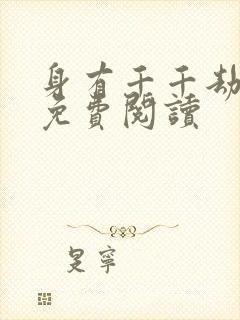 身有千千劫
免費閱讀
是寧